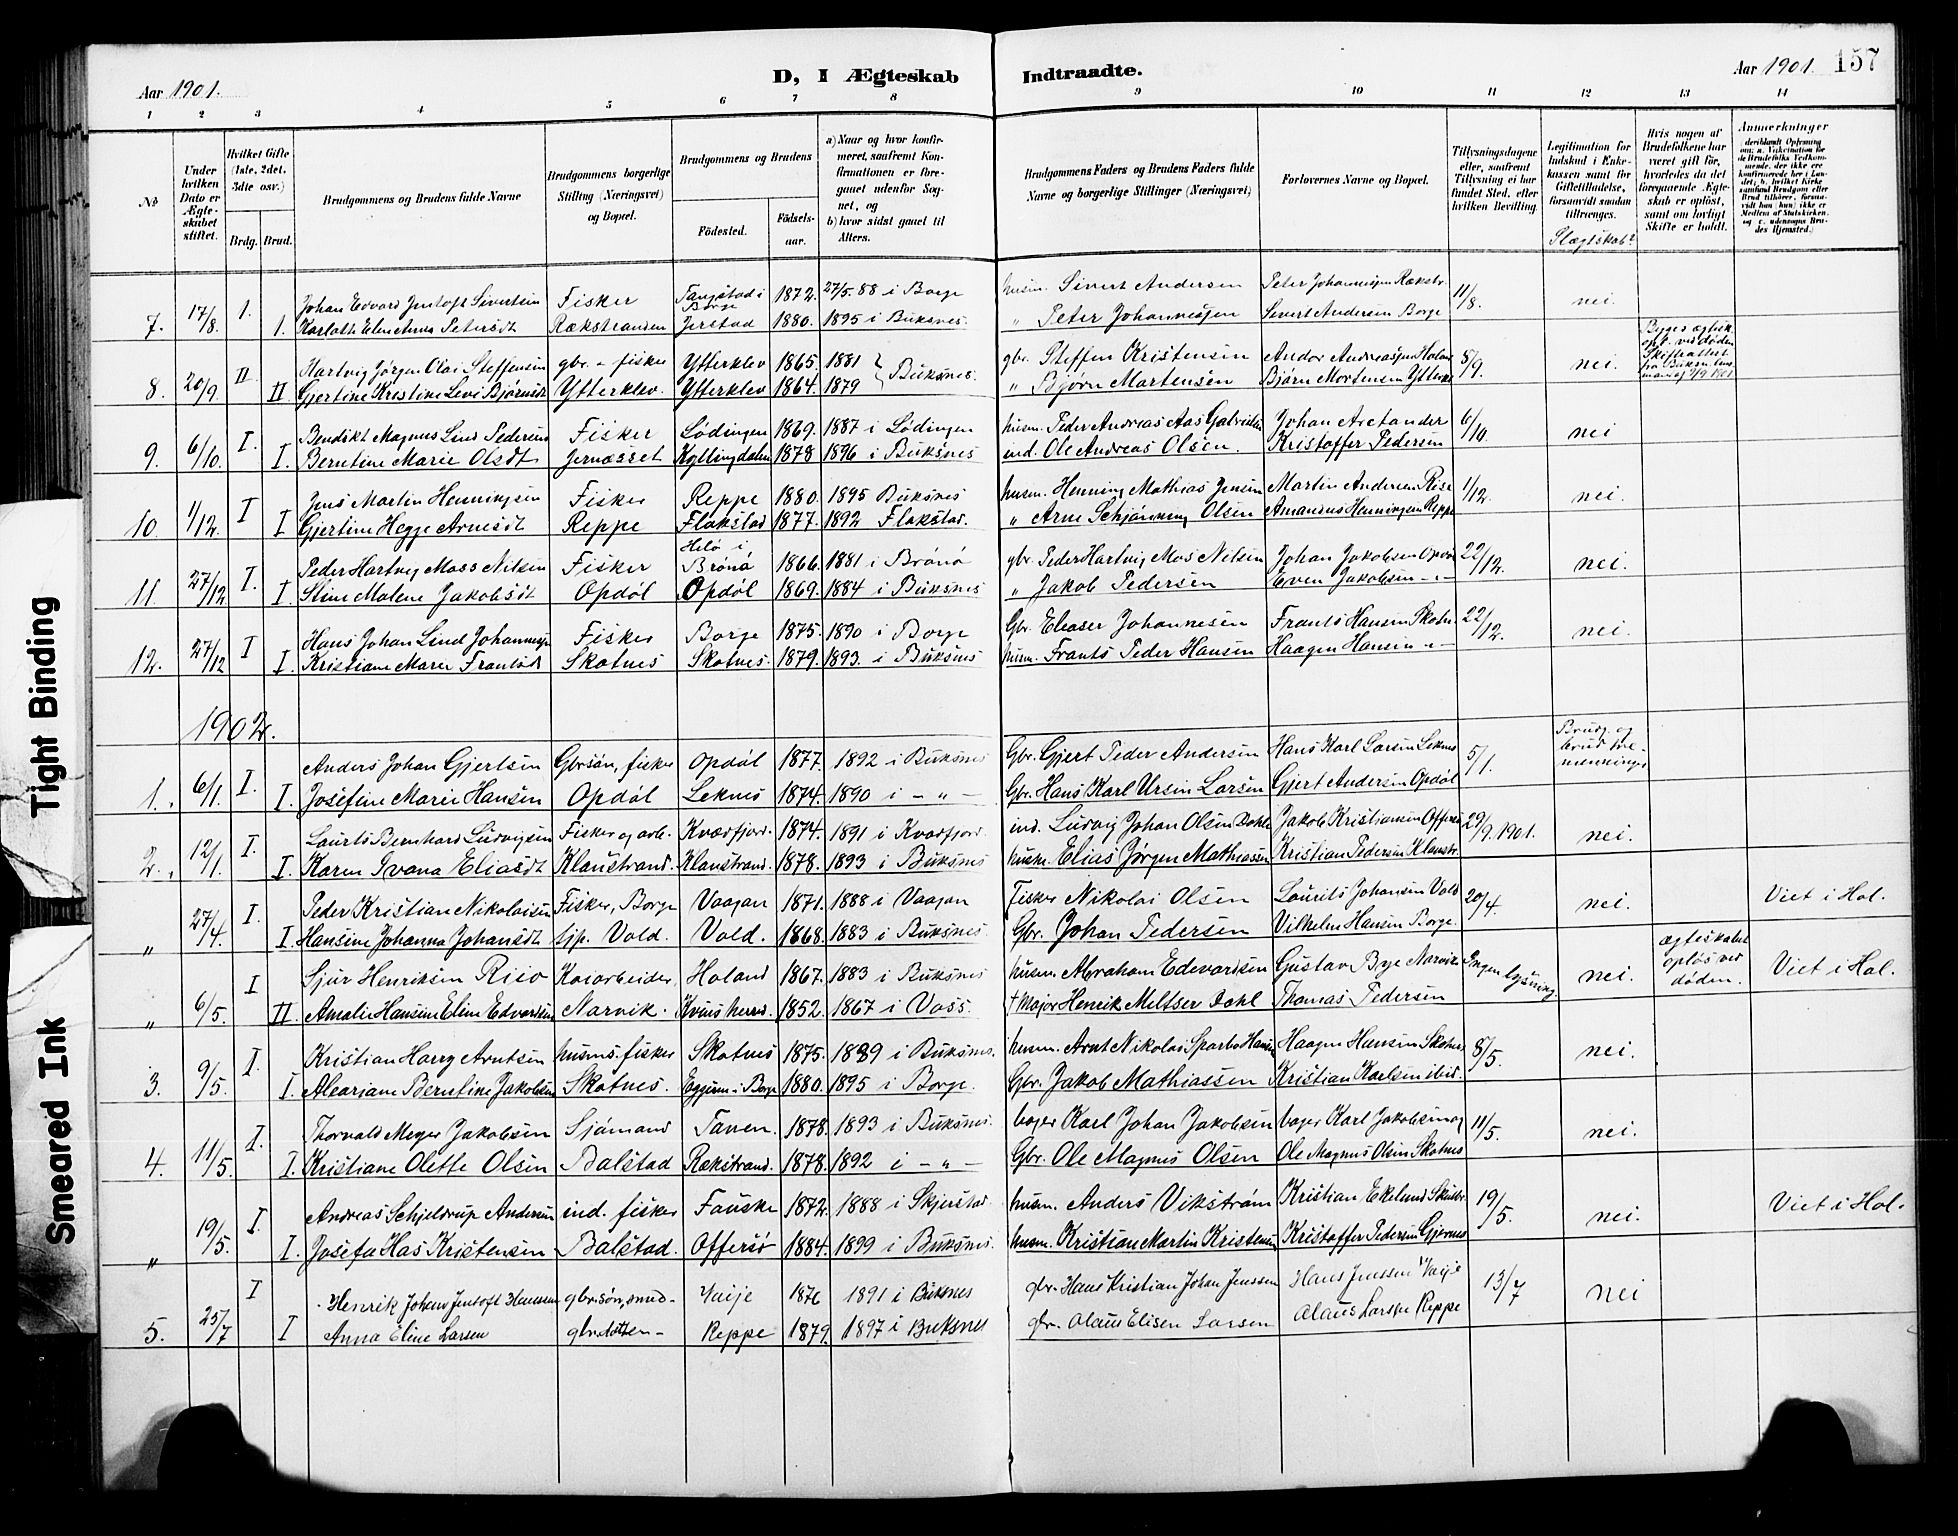 157
Aar 1901.
D, I Ægteskab Indtraadte.
Aar 1901.
1 2 3 4 5 6 7 8 9 10 11 12 13 14
No
Under hvilken Dato er Ægteskabet stiftet.
Hvilket Gifte (1ste, 2det, 3die osv.)
Brdg. Brud.
Brudgommens og Brudens fulde Navne
Brudgommens borgerlige Stilling (Næringsvei) og Bopæl.
Brudgommens og Brudens
Fødested. Fødselsaar.
a) Naar og hvor konfirmeret, saafremt Konfirmationen er foregaaet udenfor Sognet, og
b) hvor sidst gaaet til Alters.
Brudgommens Faders og Brudens Faders fulde Navne og borgerlige Stillinger (Næringsvei)
Forlovernes Navne og Bopæl.
Tillysningsdagene eller, saafremt Tillysning ei har fundet Sted, efter hvilken Bevilling.
Legitimation for Indskud i Enkekassen samt for Giftetilladelse, forsaavidt saadan tiltrænges.
Slægtskab?
Hvis nogen af Brudefolkene har været gift før, hvorledes da det foregaaende Ægteskab er opløst, samt om lovligt Skifte er holdt.
Anmerkninger
7. 17/8. I. Johan Edvard Jentoft Sivertsen Fisker Tangstad i Borge 1872. 27/5.88 i Borge husm. Sivert Andersen Peter Johannesen Rækstr. 11/8. nei.
I. Karlotte Elen Anna Petersdt Rækstranden Jerstad 1880. 1895 i Buksnes. " Peter Johannesen Sivert Andersen Borge
8. 20/9. II Hartvig Jørgen Olai Steffensen gbr. - fisker Ytterklev 1865. 1881 Buksnes. gbr. Steffen Kristensen Andor Andreassen Holand 8/9. nei.
II Gjertine Kristine Levi Bjørnsdt Ytterklev. Ytterklev 1864. 1879 " Bjørn Martensen Bjørn Mortensen Ytterkl.
9. 6/10. I. Bendikt Magnus Lind Pedersen Fisker Lødingen 1869. 1887 i Lødingen husm. Peder Andreas Aas Gabrielsen Johan Arctander 6/10. nei
I. Berntine Marie Olsdt Jernæsset Kyllingdalen 1878 1896 i Buksnes ind. Ole Andreas Olsen. Kristoffer Pedersen
10. 1/12. I Jens Martin Henningsen Fisker Reppe 1880. 1895 Buksnes husm. Henning Mathias Jensen Martin Andersen Rise 1/12. nei.
I Gjertine Hegge Arnesdt Reppe Flakstad 1877. 1892 Flakstad. " Arne Schjønning Olsen Amandus Henningsen Reppe
11. 27/12 I. Peder Hartvig Moss Nilsen Fisker Helø i Brønø 1866. 1881 i Brønø gbr. Peder Hartvig Mos Nilsen Johan Jakobsen Opdøl 22/12. nei.
I. Stine Malene Jakobsdt Opdøl Opdøl 1869. 1884 i Buksnes " Jakob Pedersen Even Jakobsen - " -
12. 27/12 I Hans Johan Lind Johannesen Fisker Borge 1875. 1890 i Borge Gbr. Eleaser Johannesen Frants Hansen Skotnes 22/12. nei.
I. Kristiane Marie Frantsdt Skotnes Skotnes. 1879. 1893. i Buksnes husm. Frants Peder Hansen Haagen Hansen - " -
1902.
1. 6/1. I. Anders Johan Gjertsen Gbrsøn, fisker Opdøl 1877. 1892 i Buksnes Gbr. Gjert Peder Andersen Hans Karl Larsen Leknes 5/1. Brudg. og brud tremenninger
I. Josefine Marie Hansen Opdøl Leknes 1874. 1890 i - " - Gbr. Hans Karl Ursin Larsen Gjert Andersen Opdøl
2. 12/1. I. Laurits Bernhard Ludvigsen Fisker og arb. Kvædfjord. 1874. 1891 i Kvædfjord. ind. Ludvig Johan Olsen Dahle Jakob Kristiansen Offersø 29/9.1901. nei.
I. Karen Ivana Eliasdt Klaustrand. Klaustrand. 1878. 1893 i Buksnes husm. Elias Jørgen Mathiassen Kristian Pedersen Klaustr.
" 27/4. I. Peder Kristian Nikolaisen Fisker, Borge Vaagan 1871. 1888 i Vaagan Fisker Nikolai Olsen Laurits Johansen Vold 20/4. nei. Viet i Hol.
I. Hansine Johanna Johansdt tjp. Vold. Vold. 1868. 1883 i Buksnes Gbr. Johan Pedersen Vilhelm Hansen Borge.
" 6/5. I Sjur Henriksen Risø Kaiarbeider, Holand 1867. 1883 i Buksnes husm. Abraham Edevardsen Gustav Bye Narvik Ingen lysning. nei. ægteskabet opløs ved døden. Viet i Hol.
II. Amalie Hansine Eline Edvardsen Narvik. Kvins herred. 1852. 1867 i Voss. † Major Henrik Meltser Dahl Thomas Pedersen
3. 9/5. I. Kristian Harry Arntsen husms. fisker Skotnes 1875. 1889 i Buksnes. husm. Arnt Nikolai Sparbo Hansen Haagen Hansen Skotnes 8/5. nei.
I. Alexriane Berntine Jakobsen Skotnes. Eggum i Borge 1880. 1895 i Borge. Gbr. Jakob Mathiassen Kristian Karlsen ibid.
4. 11/5. I. Thorvald Meyer Jakobsen Sjømand Tanen. 1878. 1893 i Buksnes. bager Karl Johan Jakobsen bager Karl Jakobsen og 11/5. nei.
I. Kristiane Olette Olsen Balstad Rækstrand. 1878. 1892 i - " - Gbr. Ole Magnus Olsen Ole Magnus Olsen Skotnes
" 19/5. I. Andreas Schjeldrup Andersen ind. fisker Fauske 1872. 1888 i Skjerstad. husm. Anders Vikstrøm Kristian Ekelund 19/5. nei. Viet i Hol.
I. Josefa Has Kristensen Balstad. Offersø 1884. 1899 i Buksnes. husm. Kristian Martin Kristensen Kristoffer Pedersen Gjernes
5. 25/7 I Henrik Johans Jentoft Hanssen gbr.søn, smed - Vaije 1876 1891 i Buksnes gbr. Hans Kristian Johan Jenssen Hans Jenssen Vaije 13/7 nei
I Anna Eline Larsen gbr.datter - Reppe 1879. 1897 i Buksnes gbr. Olaus Elisen Larsen Olaus Larsen Reppe
Tight Binding
Smeared Ink